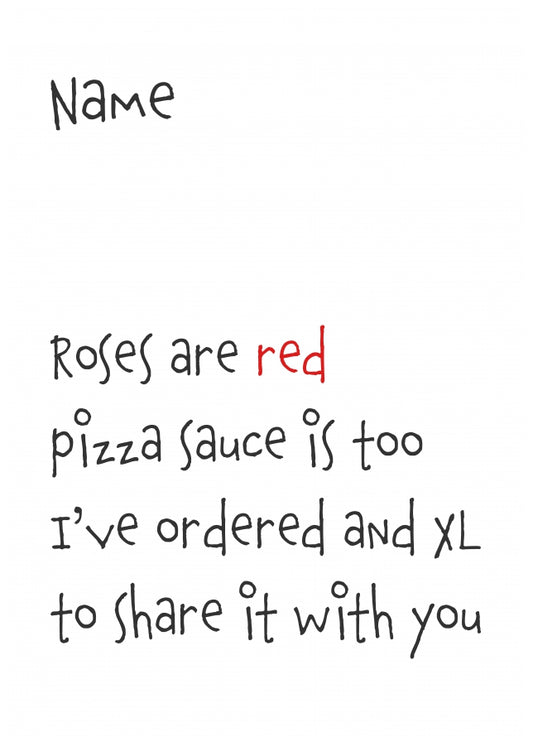 Name
Roses are red
pizza sauce is too
I've ordered and XL
to share it with you